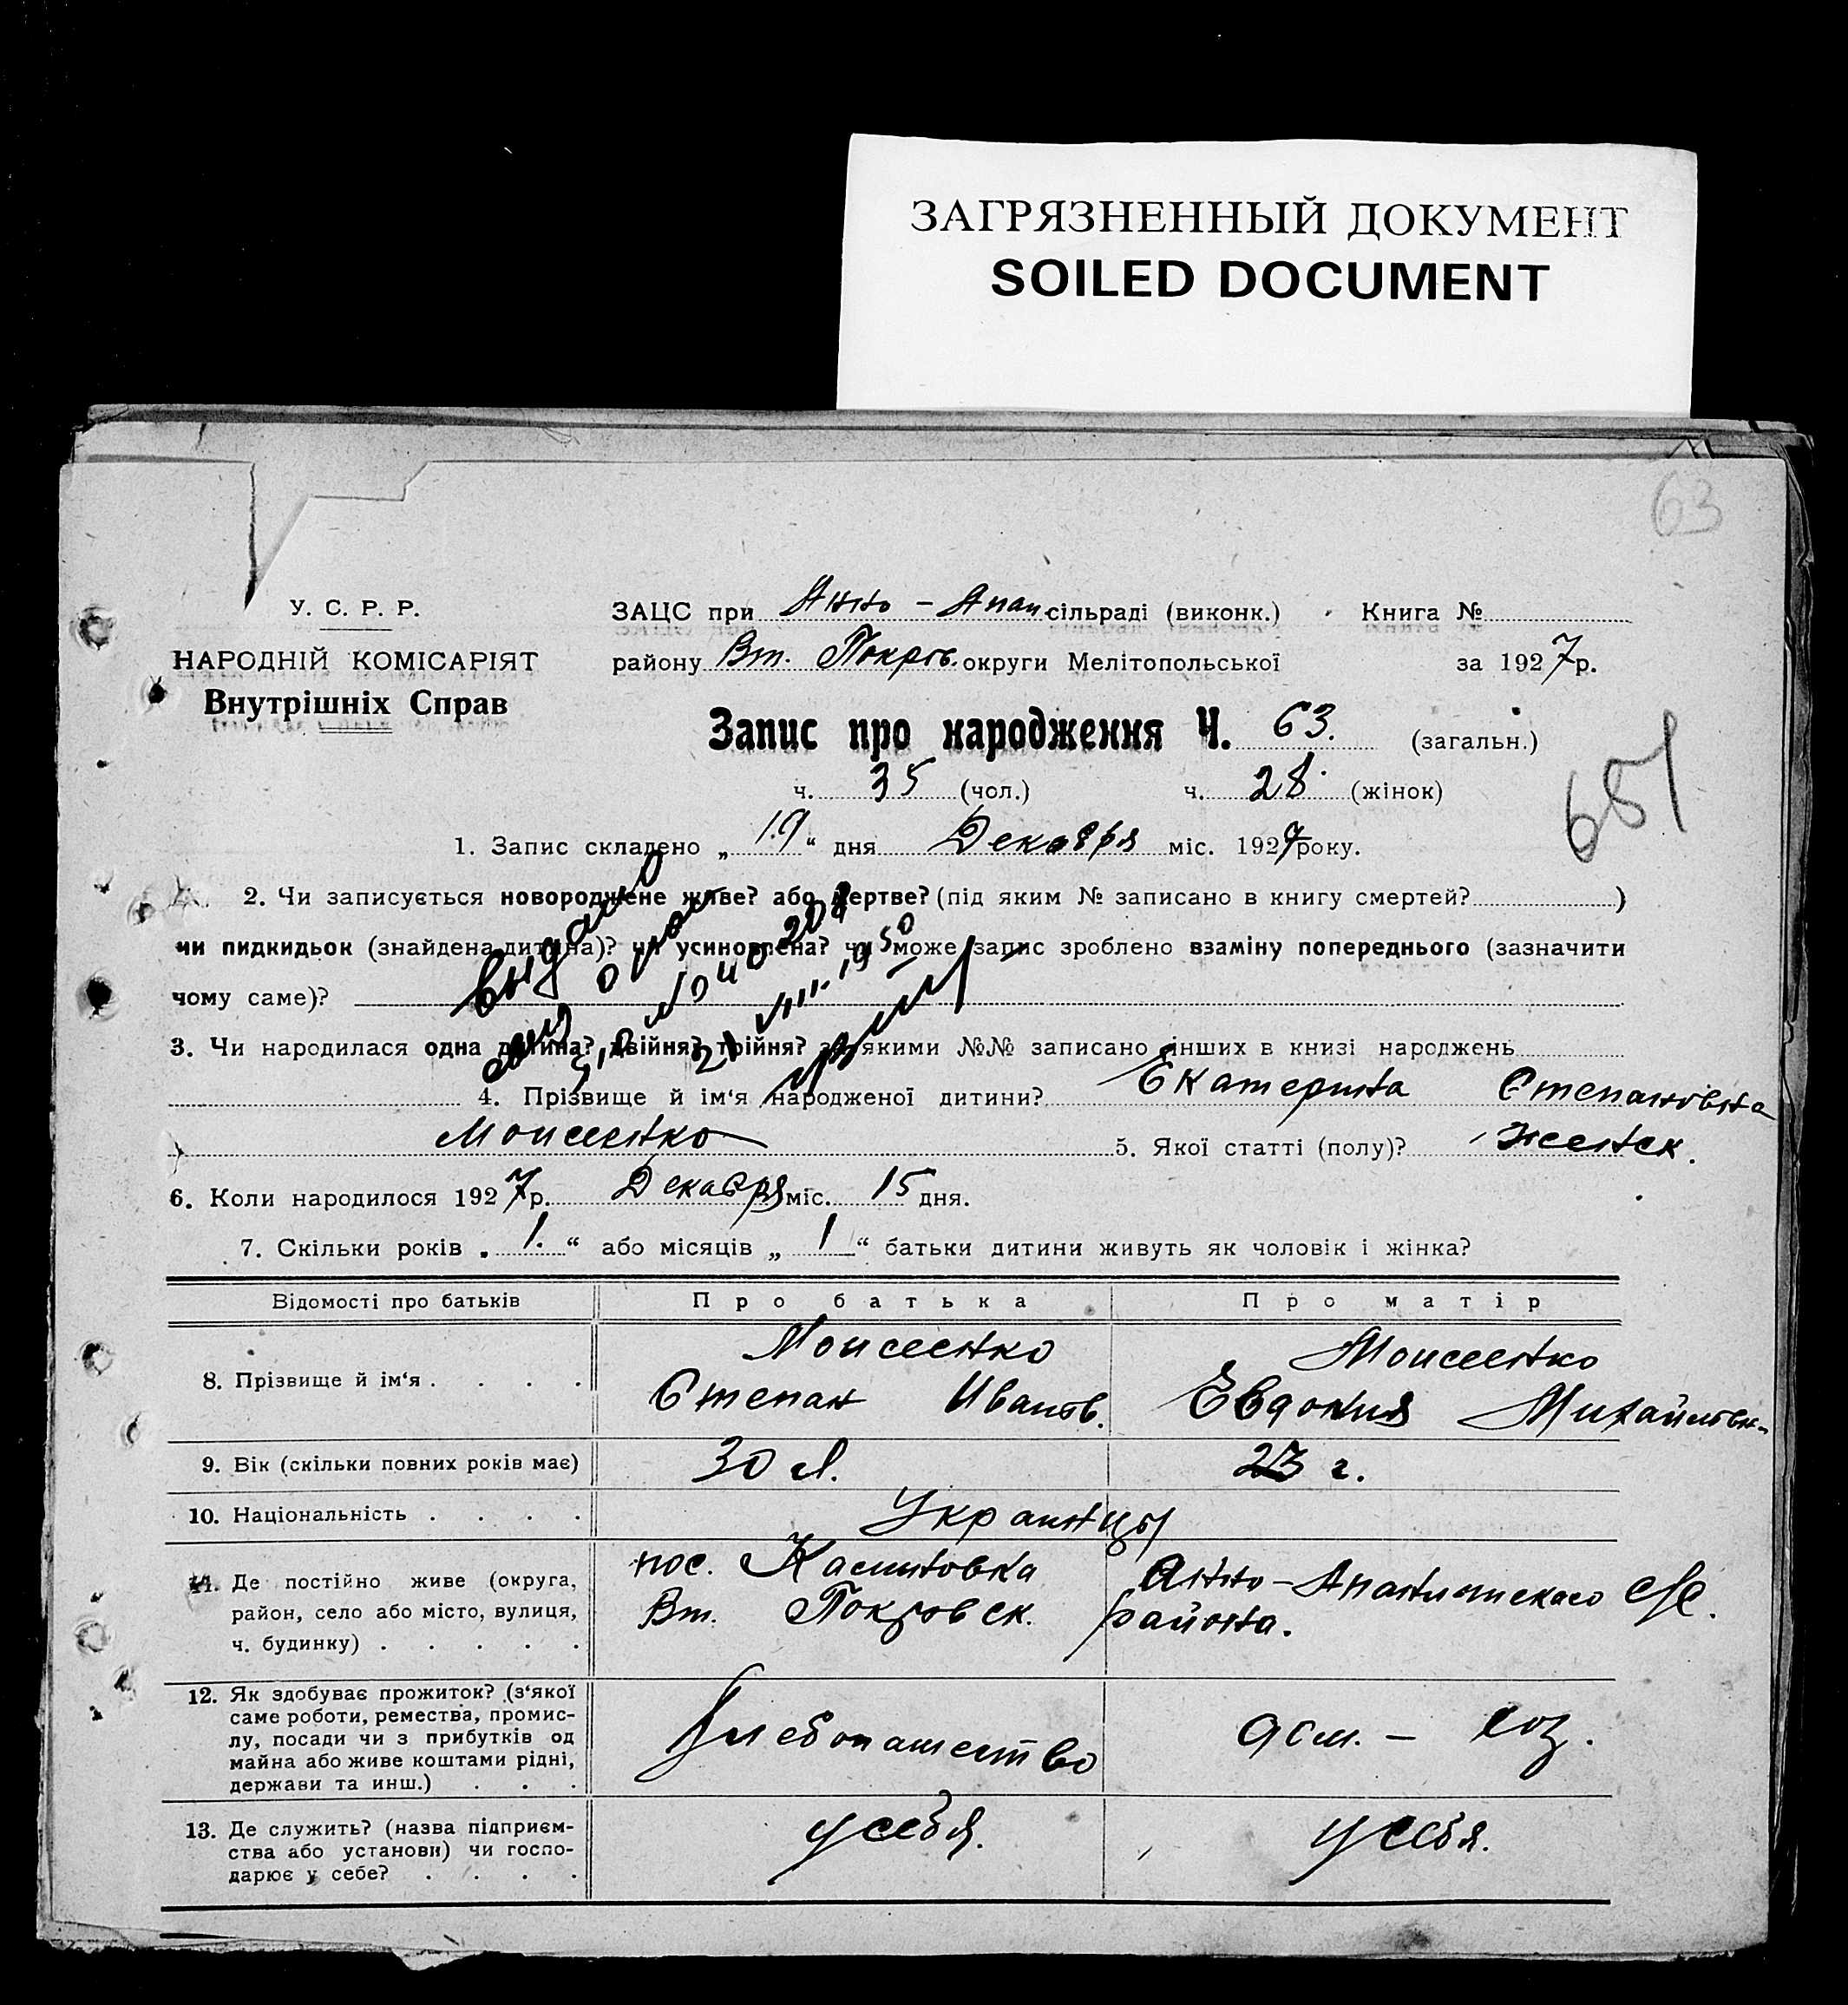 ЗАГРЯЗНЕННЫЙ ДОКУМЕНТ
SOILED DOCUMENT
63
У. С. Р. Р.
НАРОДНІЙ КОМІСАРІЯТ
Внутрішніх Справ
ЗАЦС при Анно - Апан. сільраді (виконк.) Книга №
району Вт. Покров. округи Мелітопольської за 1927 р.
Запис про народження Ч. 63. (загальн.)
ч. 35 (чол.) ч. 28. (жінок)
651
1. Запис складено „ 19 “ дня Декабря міс. 1927 року.
2. Чи записується новороджене живе? або мертве? (під яким № записано в книгу смертей? )
чи пидкидьок (знайдена дитина)? чи усиновлена? чи може запис зроблено взаміну попереднього (зазначити
чому саме)?
выдано
21 1950
3. Чи народилася одна дитина? двійня? трійня? за якими №№ записано інших в книзі народжень
4. Прізвище й ім‘я народженої дитини? Екатерина Степановна
Моисеенко 5. Якої статті (полу)? женск.
6. Коли народилося 1927 р. Декабря міс. 15 дня.
7. Скільки років „ 1. “ або місяців „ 1 “ батьки дитини живуть як чоловік і жінка?
Відомості про батьків Про батька Про матір
8. Прізвище й ім‘я . . . . Моисеенко Степан Иванов. Моисеенко Евдокия Михайловн.
9. Вік (скільки повних років має) 30 л. 23 г.
10. Національність . . . . Украинцы
11. Де постійно живе (округа, район, село або місто, вулиця, ч. будинку) . . . . .
пос. Анно-
Вт. Покровск. района.
12. Як здобуває прожиток? (з‘якої саме роботи, ремества, промислу, посади чи з прибутків од майна або живе коштами рідні, держави та инш.) . . . Хлебопашество дом. - хоз.
13. Де служить? (назва підприємства або установи) чи господарює у себе? . . . . у себя. у себя.